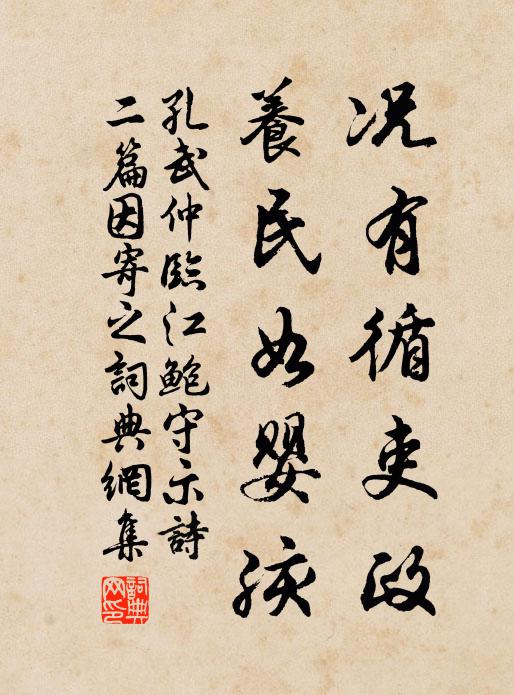 况有循吏政
養民如嬰孩
孔武仲臨江鮑守示詩
二篇因寄之詞典網集
詞典网印